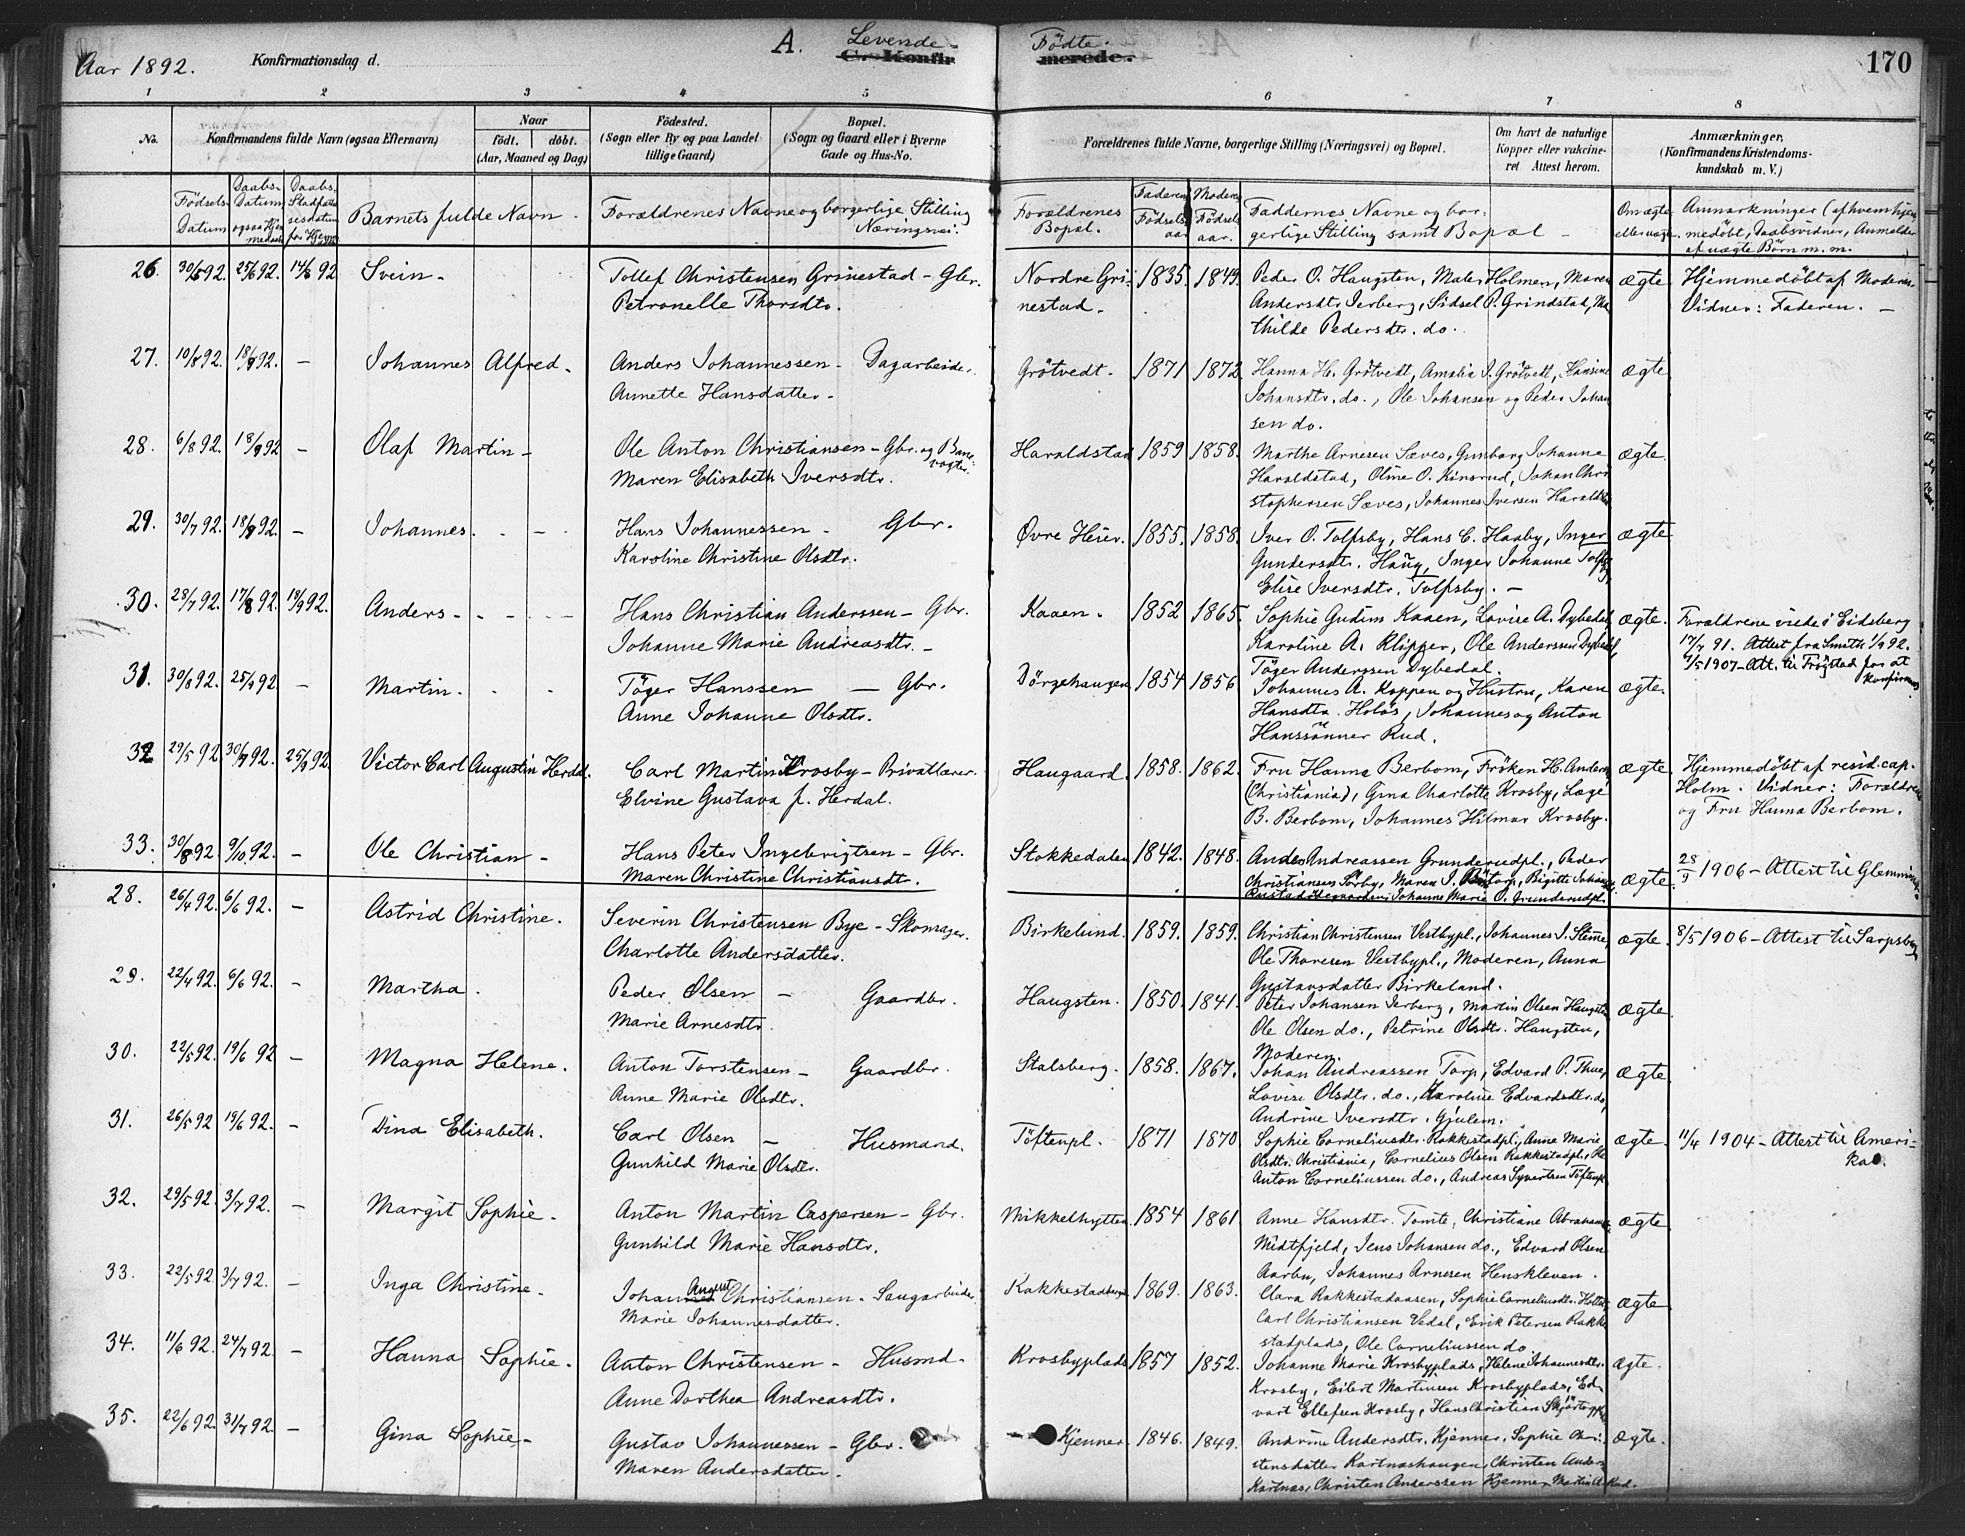 Aar 1892.
Konfirmationsdag d.
A. Levende- Fødte.
C. Konfirmerede.
170
1 2 3 4 5 6 7 8
No.
Konfirmandens fulde Navn (ogsaa Efternavn)
Naar
födt. döbt.
(Aar, Maaned og Dag)
Födested.
(Sogn eller By og paa Landet
tillige Gaard)
Bopæl.
(Sogn og Gaard eller i Byerne
Gade og Hus-No.
Forældrenes fulde Navne, borgerlige Stilling (Næringsvei) og Bopæl.
Om havt de naturlige
Kopper eller vakcineret
Attest herom.
Anmærkninger,
(Konfirmandens Kristendomskundskab
m. V.)
Fødsels
Datum
Daabs-
Datum
ogsaa Hjemmedaab
Daabs
Stadfæstelsesdatum
for Hjemmed.
Barnets fulde Navn.
Forældrenes Navne og borgerlige Stilling
Næringsvei.
Forældrenes
Bopæl.
Faderens
Fødselsaar
Moderens
Fødselsaar.
Faddernes Navne og borgerlige
Stilling samt Bopæl -
Om ægte
eller uægte
Anmærkninger (af hvem hjemmedøbt,
Daabsvidner, Anmelder
af uægte Børn m.m.
26 30/5 92. 25/6 92. 14/8 92 Svein - Tollef Christensen Grinestad - Gbr. Nordre Gri- 1835. 1849. Peder O. Haugsten, Maler Holmen, Maren ægte Hjemmedøbt af Moderen
Petronelle Thorsdtr. nestad. Andersdtr. Ierberg, Sidsel P. Grindstad, Ma Vidner: Faderen. -
thilde Pedersdtr. do.
27. 10/8 92. 18/9 92. - Johannes Alfred. Anders Johannessen - Dagarbeider. Grötvedt. 1871 1872 Hanna H. Grötvedt, Amalia I. Grötvedt, Hansine ægte
Annette Hansdatter. Johansdtr. do., Ole Johansen og Peder Johan
sen do.
28. 6/8 92. 18/9 92 - Olaf Martin - Ole Anton Christiansen - Gbr. og Banevogter. Haraldstad 1859 1858. Marthe Arnesen Sæves, Gunborg Johanne ægte.
Maren Elisabeth Iversdtr. Haraldstad, Oline O. Kinsrud, Johan Chri
stophersen Sæves, Johannes Iversen Haraldsta
29. 30/7 92. 18/9 92. - Johannes. Hans Johannessen - Gbr. Øvre Heier. 1855. 1858. Iver O. Tolfsby, Hans C. Haaby, Inger ægte
Karoline Christine Olsdtr. Gundersdt. Haug, Inger Johanne Tolfsby
Elise Iversdtr. Tolfsby. -
30. 28/7 92. 17/8 92. 18/9 92. Anders - Hans Christian Anderssen - Gbr. Kaaen. 1852 1865. Sophie Gudim Kaaen, Lovise A. Dybedal ægte. Forældrene viede i Eidsberg
Johanne Marie Andreasdtr. - Karoline A. Klipper, Ole Anderssen Dybedal 17/7 91. Attest fra Smith 1/9 92.
Töger Anderssen Dybedal. 7/5 1907 - Att. til Trøgstad for at konfirmeres
31. 30/8 92. 25/9 92. - Martin. Töger Hanssen - Gbr. Dörgehaugen 1854 1856 Johannes A. Koppen og Hustru, Karen ægte.
Anne Johanne Olsdtr. Hansdtr. Holøs, Johannes og Anton
Hanssønner Rud.
32 29/5 92. 30/7 92. 25/9 92. Victor Carl Augustin Herdal. Carl Martin Krosby - Privatlærer. Haugaard. 1858. 1862. Fru Hanna Berbom, Frøken H. Andersen ægte. Hjemmedöbt af resid. cap.
Elvine Gustava f. Herdal. (Christiania), Gina Charlotte Krosby, Læge Holm. Vidner: Forældrene
B. Berbom, Johannes Hilmar Krosby. og Fru Hanna Berbom.
33. 30/8 92. 9/10 92. - Ole Christian - Hans Peter Ingebrigtsen - Gbr. Stokkedalen 1842. 1848. Anders Andreassen Grunderudpl., Peder ægte. 28/9 1906 - Attest til Glemminge
Maren Christine Christiansdtr. Christiansen Törby, Maren I. Birgitte Johanne
Johanne Marie O. Grunderudpl.
28. 26/4 92. 6/6 92. - Astrid Christine. Severin Christensen Bye - Skomager. Birkelund. 1859. 1859. Christian Christensen Vestbypl., Johannes I. Slemme, ægte. 8/5 1906 - Attest til Sarpsborg
Charlotte Andersdatter. Ole Thoresen Vestbypl., Moderen, Anna
Gustavsdatter Birkeland.
29. 22/4 92. 6/6 92. - Martha. Peder Olsen - Gaardbr. Haugsten. 1850. 1841. Peter Johansen Ierberg, Martin Olsen Haugsten ægte.
Marie Arnesdtr. Ole Olsen do., Petrine Olsdtr. Haugsten,
Moderen.
30. 22/5 92. 19/6 92 - Magna Helene. Anton Torstensen - Gaardbr. Stalsberg. 1858. 1867. Johan Andreassen Torp, Edvard P. Thue, ægte.
Anne Marie Olsdtr. Lovise Olsdtr. do., Karoline Edvardsdtr. do,
Andrine Iversdtr. Gjulem.
31. 26/5 92 19/6 92. - Dina Elisabeth. Carl Olsen - Husmand. Töftenpl. 1871 1870 Sophie Corneliusdtr. Rakkestadpl., Anne Marie ægte. 11/4 1904 - Attest til Ameri-
Gunhild Marie Olsdtr. Olsdtr. Christiania, Cornelius Olsen Rakkestadpl., ka.
Anton Corneliussen do., Andreas Syvertsen Töftenpl.
32. 29/5 92. 3/7 92. - Margit Sophie. Anton Martin Caspersen - Gbr. Mikkelhytten. 1854 1861 Anne Hansdtr. Tomte, Christiane Abrahams ægte
Gunhild Marie Hansdtr. Midtfjeld, Jens Johansen do., Edvard Olsen
Aarbu, Johannes Arnesen Henskleven.
33. 22/5 92. 3/7 92. - Inga Christine. Johan August Christiansen - Saugarbeider Rakkestadberget 1869. 1863. Clara Rakkestadaasen, Sophie Corneliusdtr. ægte
Marie Johannesdatter. Carl Christiansen Vedal, Erik Petersen Rakke
stadplads, Ole Corneliussen do
34. 11/6 92. 24/7 92. - Hanna Sophie. Anton Christensen - Husmd. Krosbyplads 1857 1852. Johanne Marie Krosbyplads, Helene Johannesdtr. ægte.
Anne Dorthea Andreasdtr. Krosby, Eilert Martinsen Krosbyplads, Ed
vart Ellefsen Krosby, Hans Christian
35. 22/6 92. 31/7 92. - Gina Sophie - Gustav Johannessen - Gbr. Kjenner. 1846. 1849. Andrine Andersdtr. Kjenner, Sophie Chri- ægte.
Maren Andersdatter. stensdatter Kortnæshaugen, Christen Anders
Kortnæs, Christen Anderssen Kjenner,